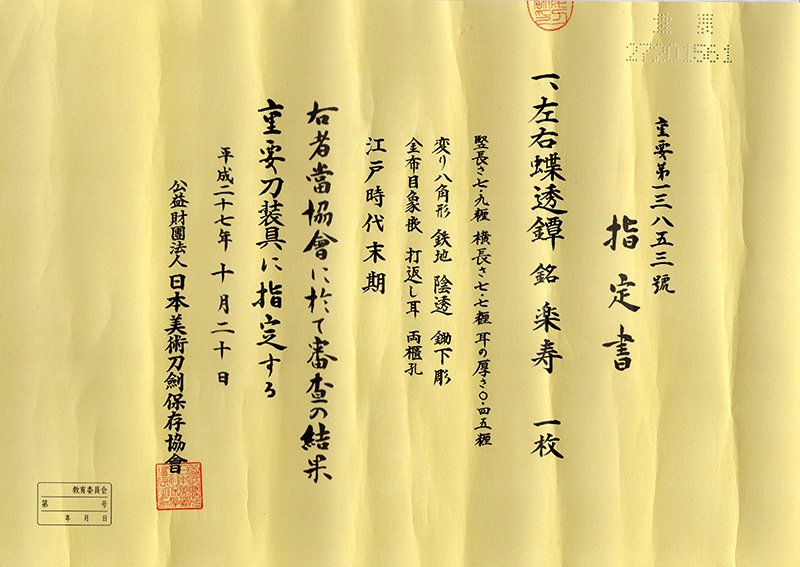 重要第一三八五三號
指定書
一、左右蝶透鐔 銘 楽寿 一枚
竪長さ七・九糎 横長さ七・七糎 耳の厚さ〇・四五糎
変り八角形 鉄地 陰透 鋤下彫
金布目象嵌 打返し耳 両櫃孔
江戸時代末期
右者當協會に於て審査の結果
重要刀装具に指定する
平成二十七年 十月二十日
公益財團法人 日本美術刀劍保存協會
27201561
教育委員会
第 号
年 月 日